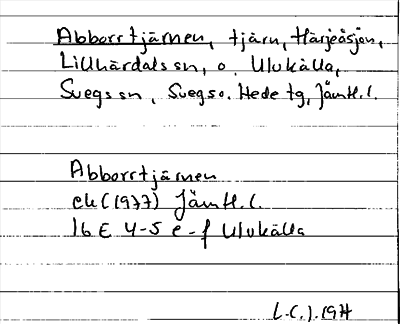 Abborrtjärnen, tjärn, Härjeåsjön,
Lillhärdals sn, o. Ulvkälla,
Svegs sn, Svegs o. Hede tg, Jämtl. l.
Abborrtjärnen
ek (1977) Jämtl. l.
16 E 4-5 e-f Ulvkälla
L.C.J. 1977